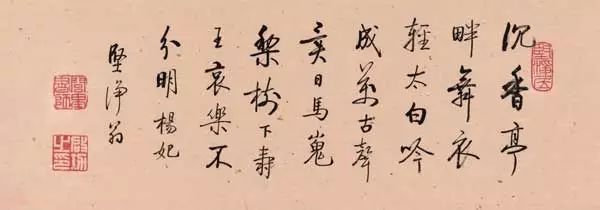 沉香亭
畔舞衣
輕太白吟
成萬古聲
異日馬嵬
梨樹下壽
王哀樂不
分明楊妃
堅淨翁